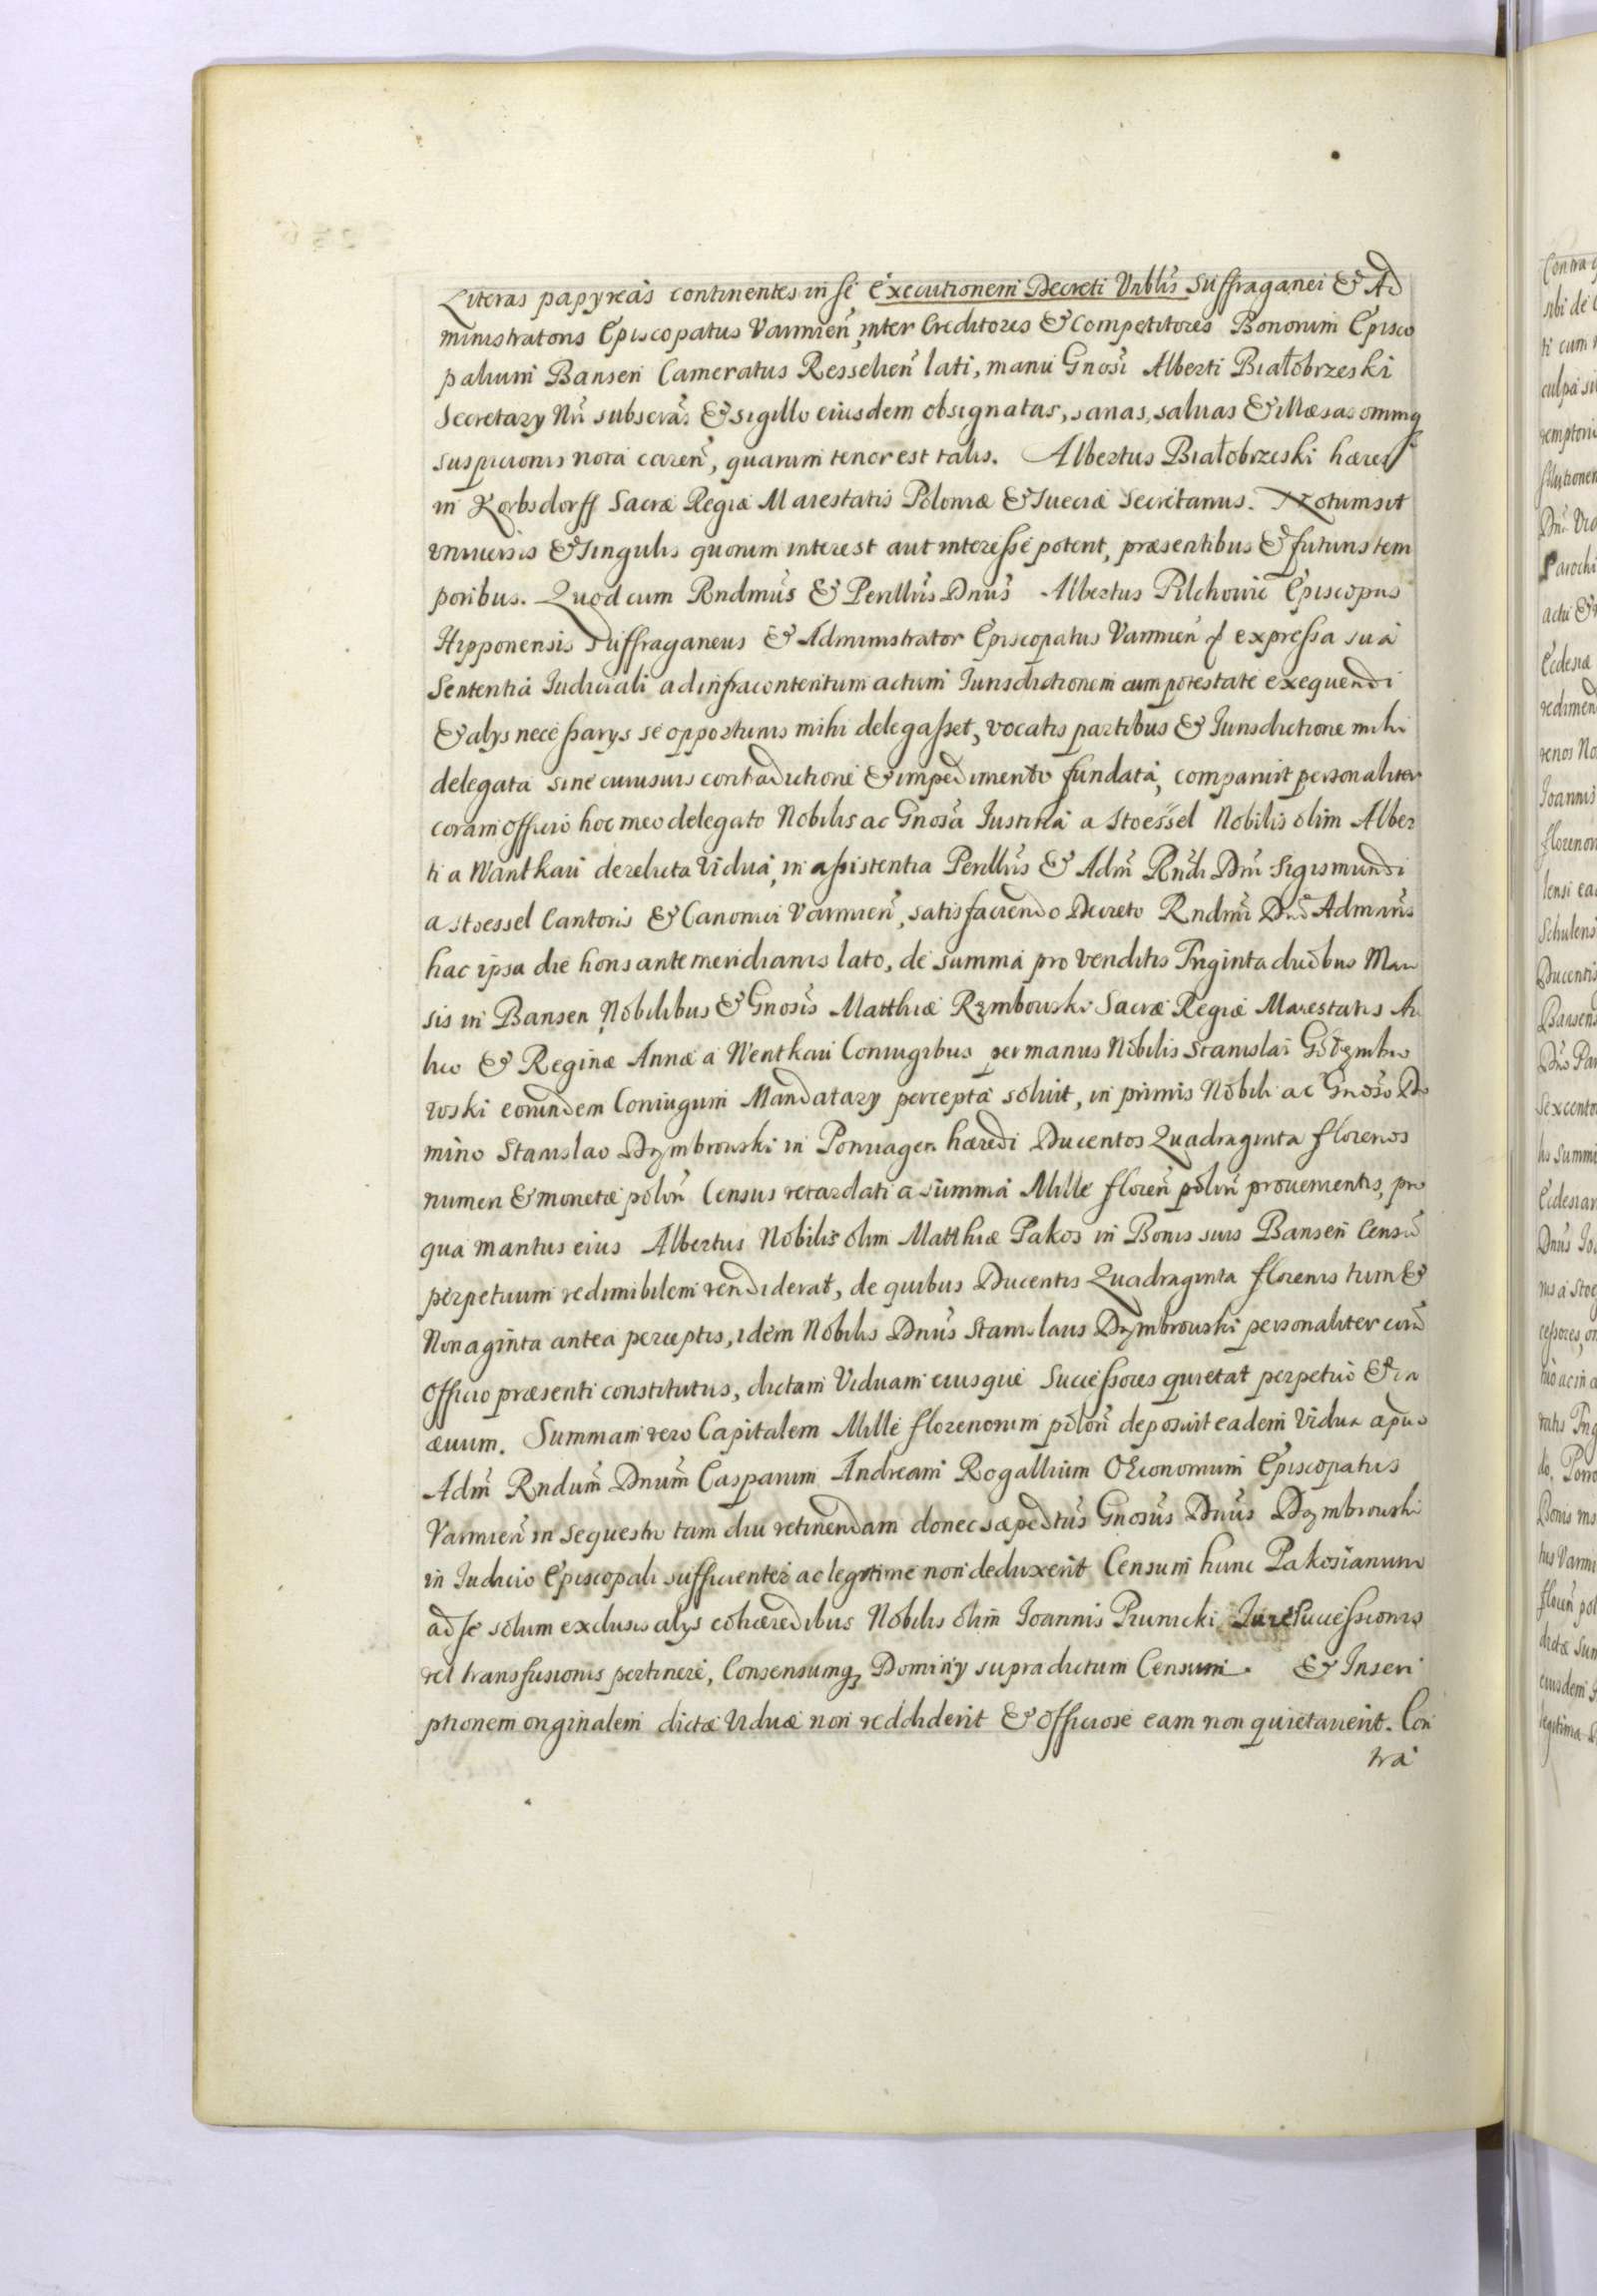 Literas papyreas continentes in se Executionem Decreti Vnblis Suffraganei & Ad
ministratoris Episcopatus Varmien̄, inter Creditores & Competitores Bonorum Episco
palium Bansen Cameratus Resselien̄ lati, manu Gnosi Alberti Białobrzeski
Secretary Nri subscras & sigillo eiusdem obsignatas, sanas, saluas & illæsas omniq
suspicionis nota caren̄, quarum tenor est talis. Albertus Białobrzeski hæres
in Korbsdorff Sacræ Regiæ Maiestatis Poloniæ & Sueciæ Secretarius. Notum sit
vniuersis & Singulis quorum interest aut interesse poterit, præsentibus & futuris tem
poribus. Quod cum Rndmus & Perillris Dnus Albertus Pilchowic Episcopus
Hipponensis Suffraganeus & Administrator Episcopatus Varmien̄ expressa sua
Sententia Iudiciali ad infracontentum actum Iurisdictionem cum potestate exequendi
& alys necessarys se opportunis mihi delegasset, vocatis partibus & Iurisdictione mihi
delegata sine cuiusuis contradictione & impedimento fundata, comparuit personaliter
coram Officio hoc meo delegato Nobilis ac Gnosa Iustina a Stoessel Nobilis olim Alber
ti a Wantkau derelicta Vidua, in assistentia Perillris & Adm̄ Rndi Dni Sigismundi
a Stoessel Cantoris & Canonici Varmien̄, satisfaciendo Decreto Rndmi Dni Admrīs
hac ipsa die horis antemeridianis lato, de summa pro venditis Triginta duobus Man
sis in Bansen, Nobilibus & Gnosis Matthiæ Rzmbowski Sacræ Regiæ Maiestatis Au
lico & Reginæ Annæ a Wentkau Coniugibus per manus Nobilis Stanislai
woski eorundem Coniugum Mandatary percepta soluit, in primis Nobili ac Gnoso Do
mino Stanislao Dzmbrowski in Ponnagen hæredi Ducentos Quadraginta florenos
numeri & monetæ polon̄ Census retardati a summa Mille floren̄ polon̄ prouenientis, pro
qua maritus eius Albertus Nobilis olim Matthiæ Pakos in Bonis suis Bansen Censū
perpetuum redimibilem vendiderat, de quibus Ducentis Quadraginta florenis tum &
Nonaginta antea perceptis, idem Nobilis Dnus Stanislaus Dzmbrowski personaliter corā
Officio præsenti constitutus, dictam Viduam eiusque Successores quietat perpetuo & in
æuum. Summam vero Capitalem Mille florenorum polon̄ deposuit eadem Vidua apud
Adm̄ Rndum̄ Dnum̄ Casparum Andream Rogallium Oeconomum Episcopatus
Varmien̄ in sequestro tam diu retinendam donec sæpedtus Gnosus Dnus Dzmbrowski
in Iudicio Episcopali sufficienter ac legitime non deduxerit Censum hunc Pakosianum
ad se solum exclusis alys cohæredibus Nobilis olim Ioannis Prunicki Iure Successionis
vel transfusionis pertinere, Consensumq Dominy supradictum Censum. & Inscri
ptionem originalem dictæ Viduæ non reddiderit & Officiose eam non quietauerit. Con
tra